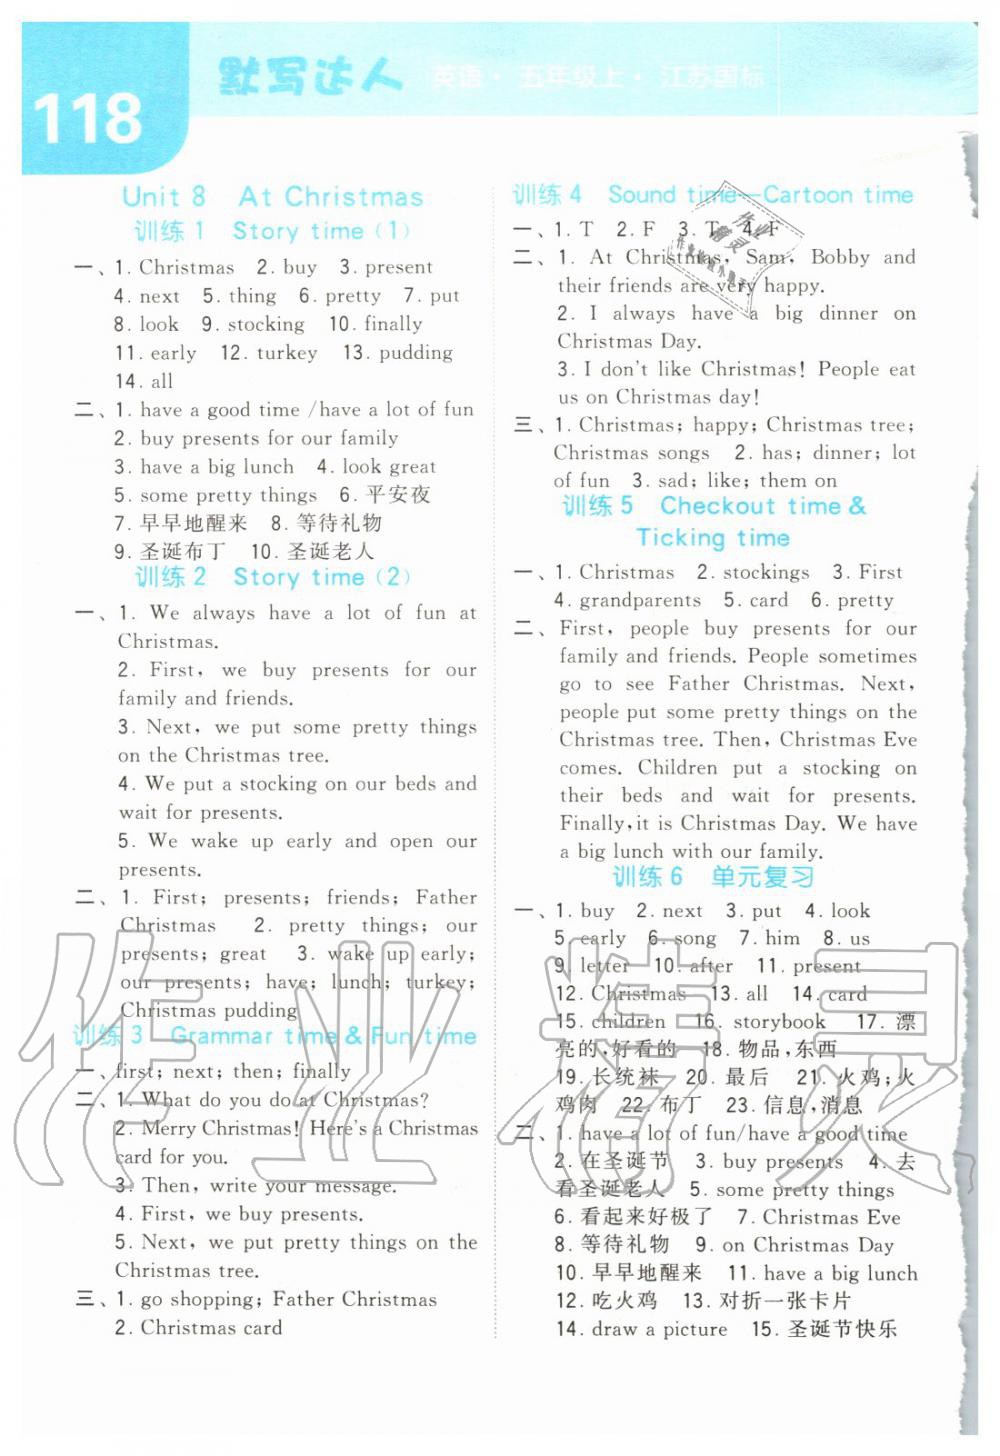 118
默写达人 英语·五年级上·江苏国标
Unit 8 At Christmas
训练1 Story time(1)
一、1. Christmas 2. buy 3. present
4. next 5. thing 6. pretty 7. put
8. look 9. stocking 10. finally
11. early 12. turkey 13. pudding
14. all
二、1. have a good time /have a lot of fun
2. buy presents for our family
3. have a big lunch 4. look great
5. some pretty things 6. 平安夜
7. 早早地醒来 8. 等待礼物
9. 圣诞布丁 10. 圣诞老人
训练2 Story time(2)
一、1. We always have a lot of fun at
Christmas.
2. First, we buy presents for our
family and friends.
3. Next, we put some pretty things
on the Christmas tree.
4. We put a stocking on our beds and
wait for presents.
5. We wake up early and open our
presents.
二、1. First; presents; friends; Father
Christmas 2. pretty things; our
presents; great 3. wake up early;
our presents; have; lunch; turkey;
Christmas pudding
训练3 Grammar time & Fun time
一、first; next; then; finally
二、1. What do you do at Christmas?
2. Merry Christmas! Here's a Christmas
card for you.
3. Then, write your message.
4. First, we buy presents.
5. Next, we put pretty things on the
Christmas tree.
三、1. go shopping; Father Christmas
2. Christmas card
训练4 Sound time—Cartoon time
一、1. T 2. F 3. T 4. F
二、1. At Christmas, Sam, Bobby and
their friends are very happy.
2. I always have a big dinner on
Christmas Day.
3. I don't like Christmas! People eat
us on Christmas day!
三、1. Christmas; happy; Christmas tree;
Christmas songs 2. has; dinner; lot
of fun 3. sad; like; them on
训练5 Checkout time &
Ticking time
一、1. Christmas 2. stockings 3. First
4. grandparents 5. card 6. pretty
二、First, people buy presents for our
family and friends. People sometimes
go to see Father Christmas. Next,
people put some pretty things on the
Christmas tree. Then, Christmas Eve
comes. Children put a stocking on
their beds and wait for presents.
Finally, it is Christmas Day. We have
a big lunch with our family.
训练6 单元复习
一、1. buy 2. next 3. put 4. look
5. early 6. song 7. him 8. us
9. letter 10. after 11. present
12. Christmas 13. all 14. card
15. children 16. storybook 17. 漂
亮的,好看的 18. 物品,东西
19. 长统袜 20. 最后 21. 火鸡;火
鸡肉 22. 布丁 23. 信息,消息
二、1. have a lot of fun/have a good time
2. 在圣诞节 3. buy presents 4. 去
看圣诞老人 5. some pretty things
6. 看起来好极了 7. Christmas Eve
8. 等待礼物 9. on Christmas Day
10. 早早地醒来 11. have a big lunch
12. 吃火鸡 13. 对折一张卡片
14. draw a picture 15. 圣诞节快乐
作业精灵
作业精灵